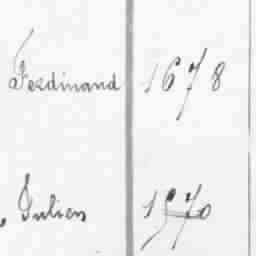 Ferdinand 1678
Julien 1970